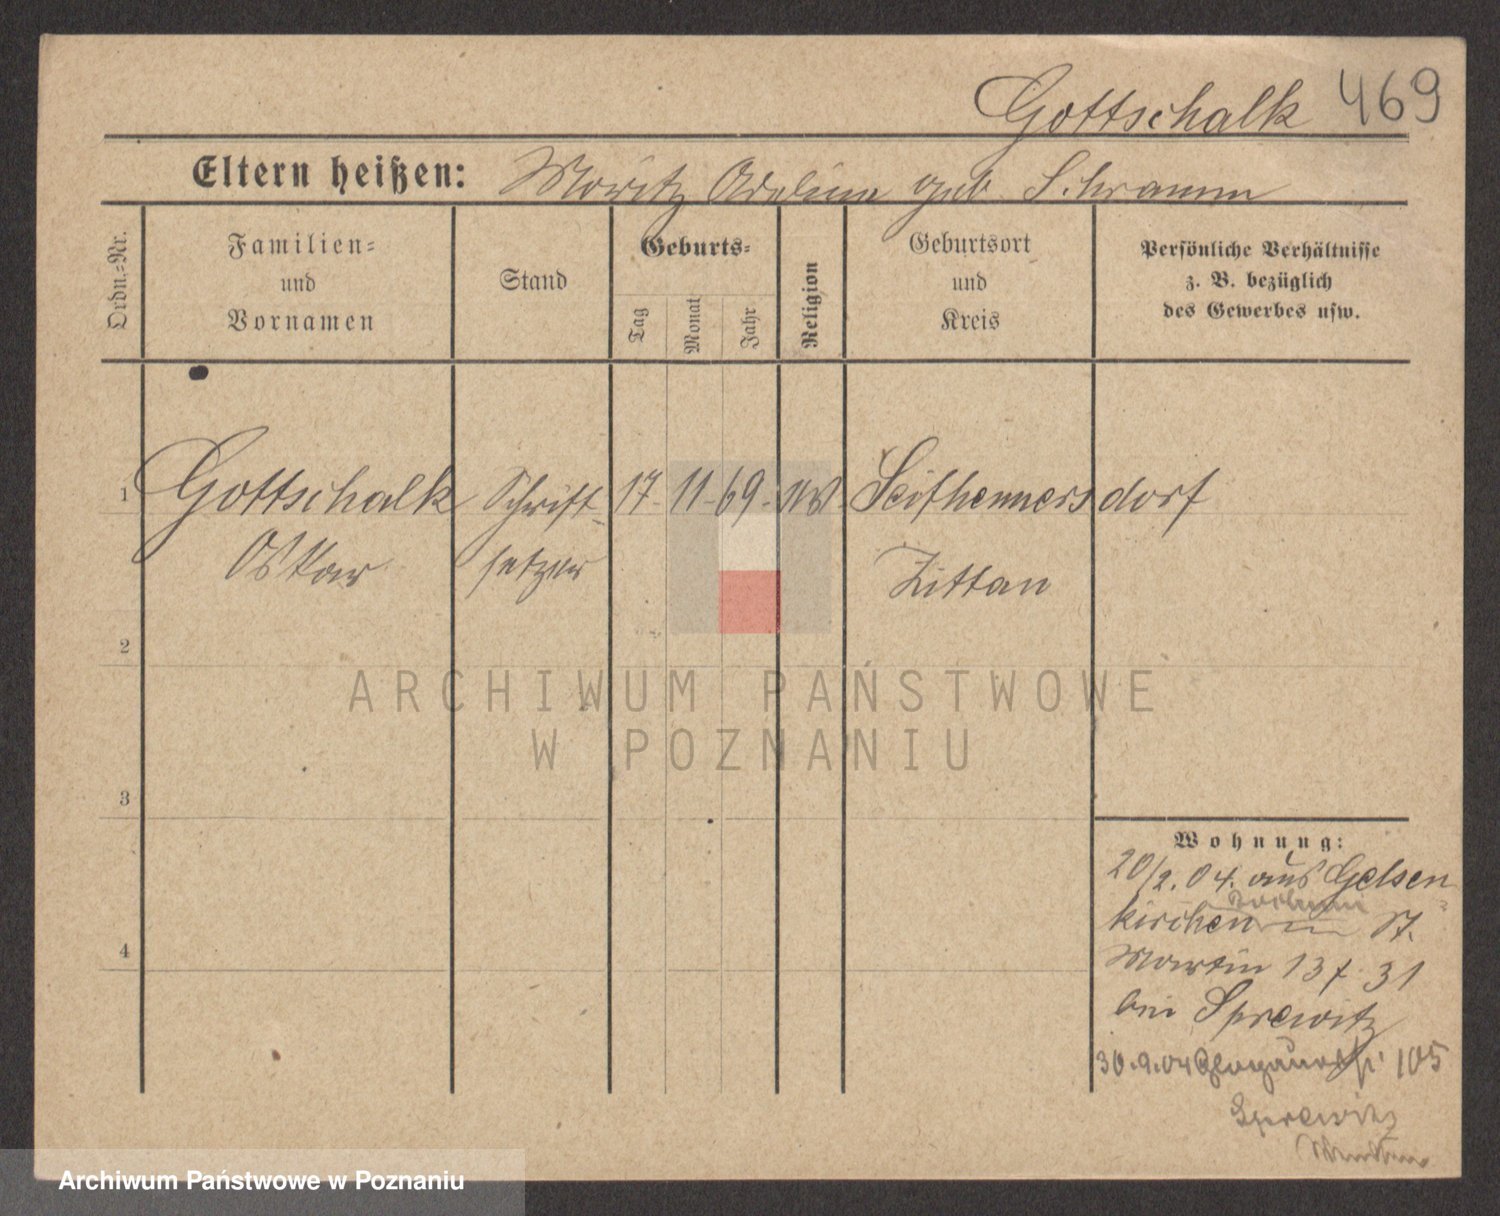 Gottschalk 469
Eltern heißen: Moritz Adeline geb. Schramm
Ordn.=Nr.
Familien=
und
Vornamen
Stand
Geburts=
Tag
Monat
Jahr
Religion
Geburtsort
und
Kreis
Persönliche Verhältnisse
z. B. bezüglich
des Gewerbes usw.
1 Gottschalk Schrift- 17. 11. 69. Seifhennersdorf
Oskar setzer Zittau
2
3
4
ARCHIWUM PAŃSTWOWE
W POZNANIU
Wohnung:
20/2. 04. aus Gelsen=
kirchen St.
Martin 31
bei Sprewitz
30.9.04 Glogauerstr 105
Sprewitz
Archiwum Państwowe w Poznaniu